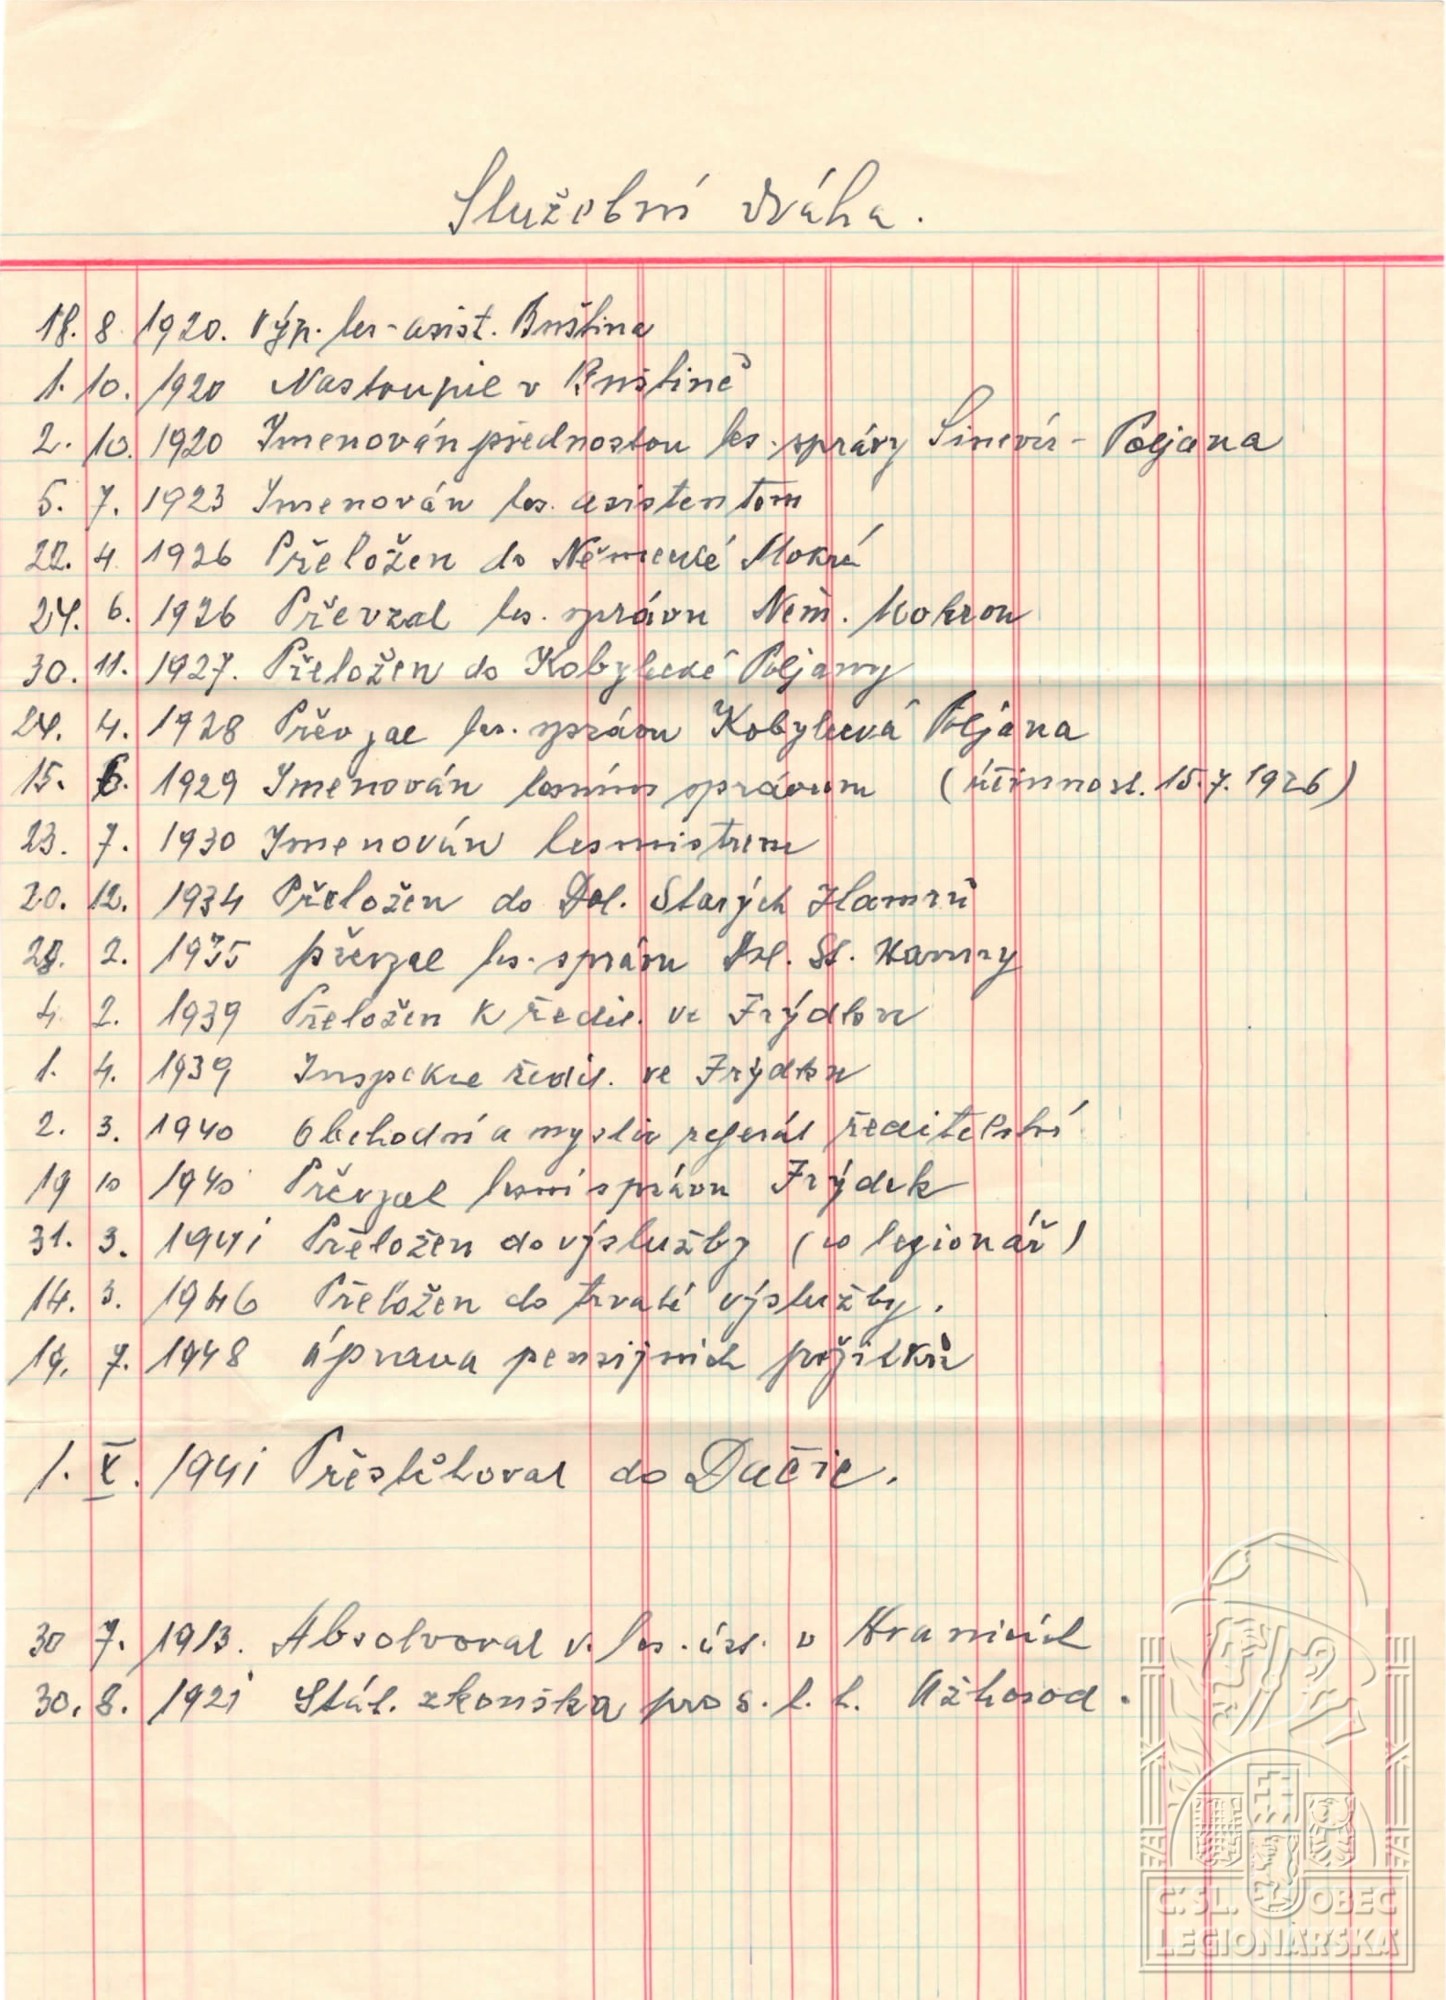 Služební dráha.
18. 8. 1920. Výp. les-asist. Buština
1. 10. 1920 Nastoupil v Buštině
2. 10. 1920 Jmenován přednostou les. správy Sinevír - Poljana
5. 7. 1923 Jmenován les. asistentem
22. 4. 1926 Přeložen do Německé Mokré
24. 6. 1926 Převzal les. správu Něm. Mokrou
30. 11. 1927. Přeložen do Kobylecké Poljany
24. 4. 1928 Převzal les. správu Kobylecká Poljana
15. 6. 1929 Jmenován lesním správcem (účinnost. 15. 7. 1926)
23. 7. 1930 Jmenován lesmistrem
20. 12. 1934 Přeložen do Dol. Starých Hamrů
28. 2. 1935 převzal les. správu Dol. St. Hamry
4 2. 1939 Přeložen k ředit. ve Frýdku
1. 4. 1939 Inspekce ředit. ve Frýdku
2. 3. 1940 Obchodní a mysliv referát ředitelství
19 10 1940 Převzal lesní správu Frýdek
31. 3. 1941 Přeložen do výslužby (co legionář)
14. 3. 1946 Přeložen do trvalé výslužby.
19. 7. 1948 úprava pensijních požitků
1. X. 1941 Přestěhoval do Dačic.
30 7. 1913. Absolvoval v. les. úst. v Hranicích
30. 8. 1921 Stát. zkouška pro s. l. h. Užhorod.
Č.SL. OBEC
LEGIONÁŘSKÁ